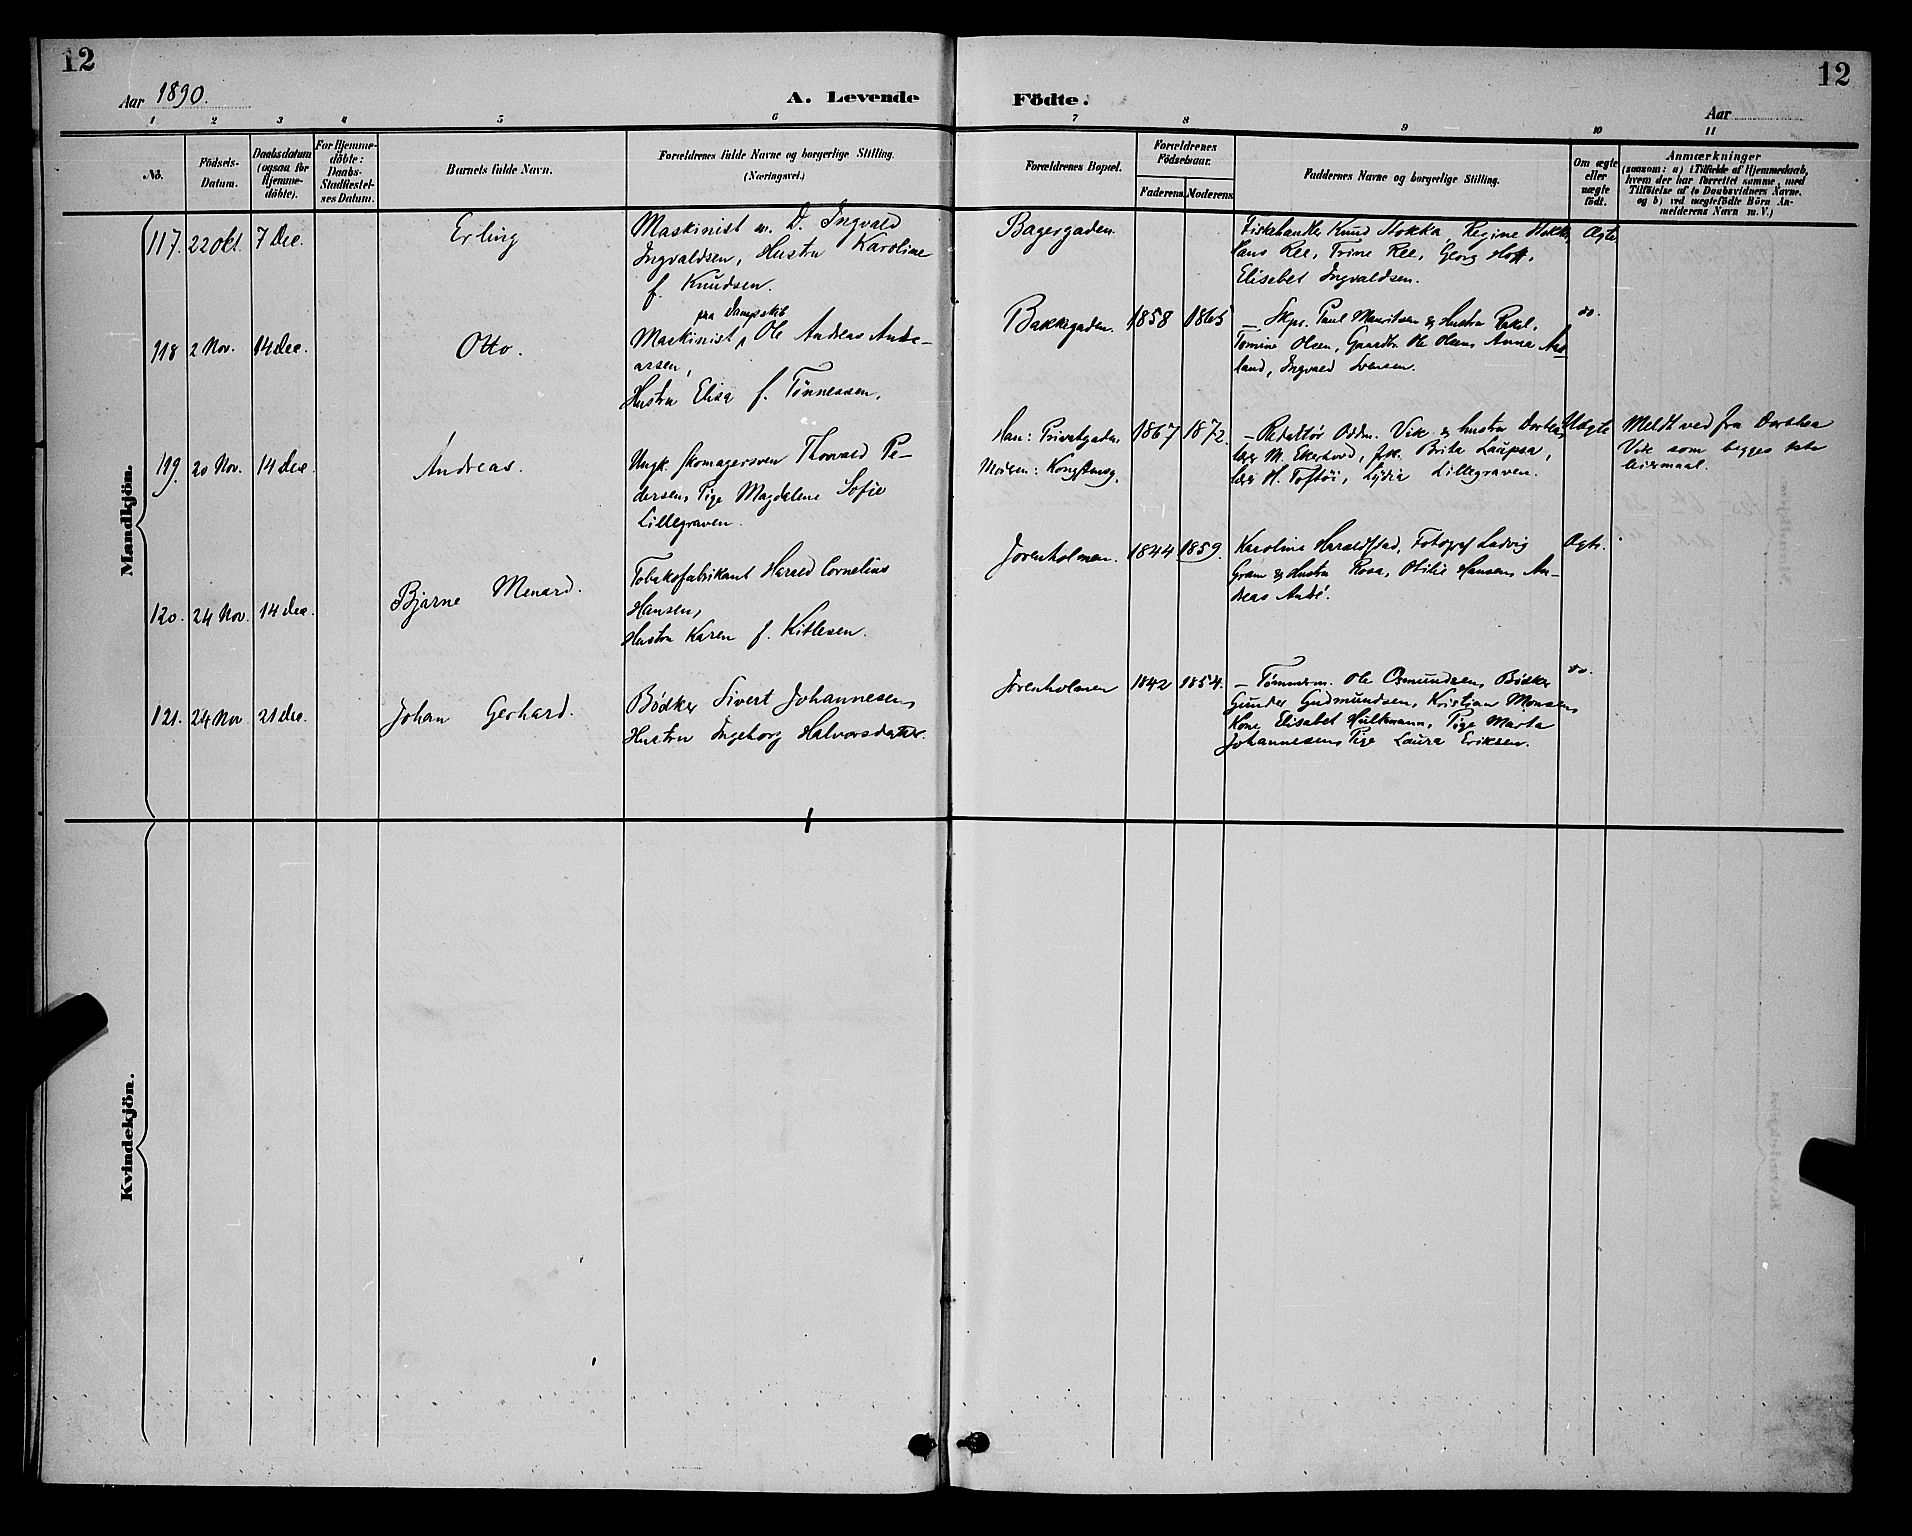 12
12
Aar 1890.
A. Levende Födte.
Aar
1 2 3 4 5 6 7 8 9 10 11
No.
Födsels-Datum.
Daabsdatum (ogsaa for Hjemme-döbte).
For Hjemme-döbte: Daabs-Stadfæstel-ses Datum.
Barnets fulde Navn.
Forældrenes fulde Navne og borgerlige Stilling.
(Næringsvei.)
Forældrenes Bopæl.
Forældrenes Födselsaar.
Faderens Moderens
Faddernes Navne og borgerlige Stilling.
Om ægte eller uægte født.
Anmærkninger
(saasom: a) i Tilfælde af Hjemmedaab,
hvem der har forrettet samme, med
Tilföielse af to Daabsvidners Navne.
og b) ved uegtefödte Börn An-
melderens Navn m. V.)
Mandkjön.
117. 22 Okt. 7 Dec. Erling
Maskinist m. D. Ingvald
Ingvaldsen, Hustru Karoline
f. Knudsen.
Bagergaden.
Fiskehandler Knud Stokka, Regine Stokka,
Hans Ree, Trine Ree, Georg Hoff,
Elisabet Ingvaldsen.
Ægte
118 2 Nov. 14 dec. Otto.
paa Dampskib
Maskinist, Ole Andreas Andre-
assen,
Hustru Elisa f. Tönnessen,
Bakkegaden. 1858 1865
— Skpr. Paul Mauritsen & Hustru Rakel,
Tomine Olsen, Gaardbr. Ole Olsen, Anna
land, Ingvald Svensen.
do.
119. 20 Nov. 14 dec. Andreas.
Ungk. skomagersven Thorvald Pe-
dersen, Pige Magdalene Sofie
Lillegraven.
Han: Privatgaden
Moderen: Kongstensg.
1867 1872.
— Redaktör Oddm. Vik & hustru Dorthea,
lærer M. Ekerhovd, frk. Brita Laupsa,
lærer H. Toftöi, Lydia Lillegraven.
Uægte
Meldt ved fru Dorthea
Vik som begges 1ste
leiermaal.
120. 24 Nov. 14 dec. Bjarne Menard.
Tobaksfabrikant Harald Cornelius
Hansen,
Hustru Karen f. Kitlesen.
Jorenholmen. 1844 1859.
Karoline Haraldstad, Fotograf Ludvig
Gram & Hustru Rosa, Otilie Hansen, An-
dreas André.
Ægte.
121. 24 Nov 21 dec. Johan Gerhard.
Bödker Sivert Johannesen,
Hustru Ingeborg Halvorsdatter.
Jorenholmen 1842 1854.
— Tömmerm. Ole Osmundsen, Bödker
Gunder Gudmundsen, Kristian Monsen,
Kone Elisabet Hultmann, Pige Marta
Johannesen, Pige Laura Eriksen.
do.
Kvindekjön.